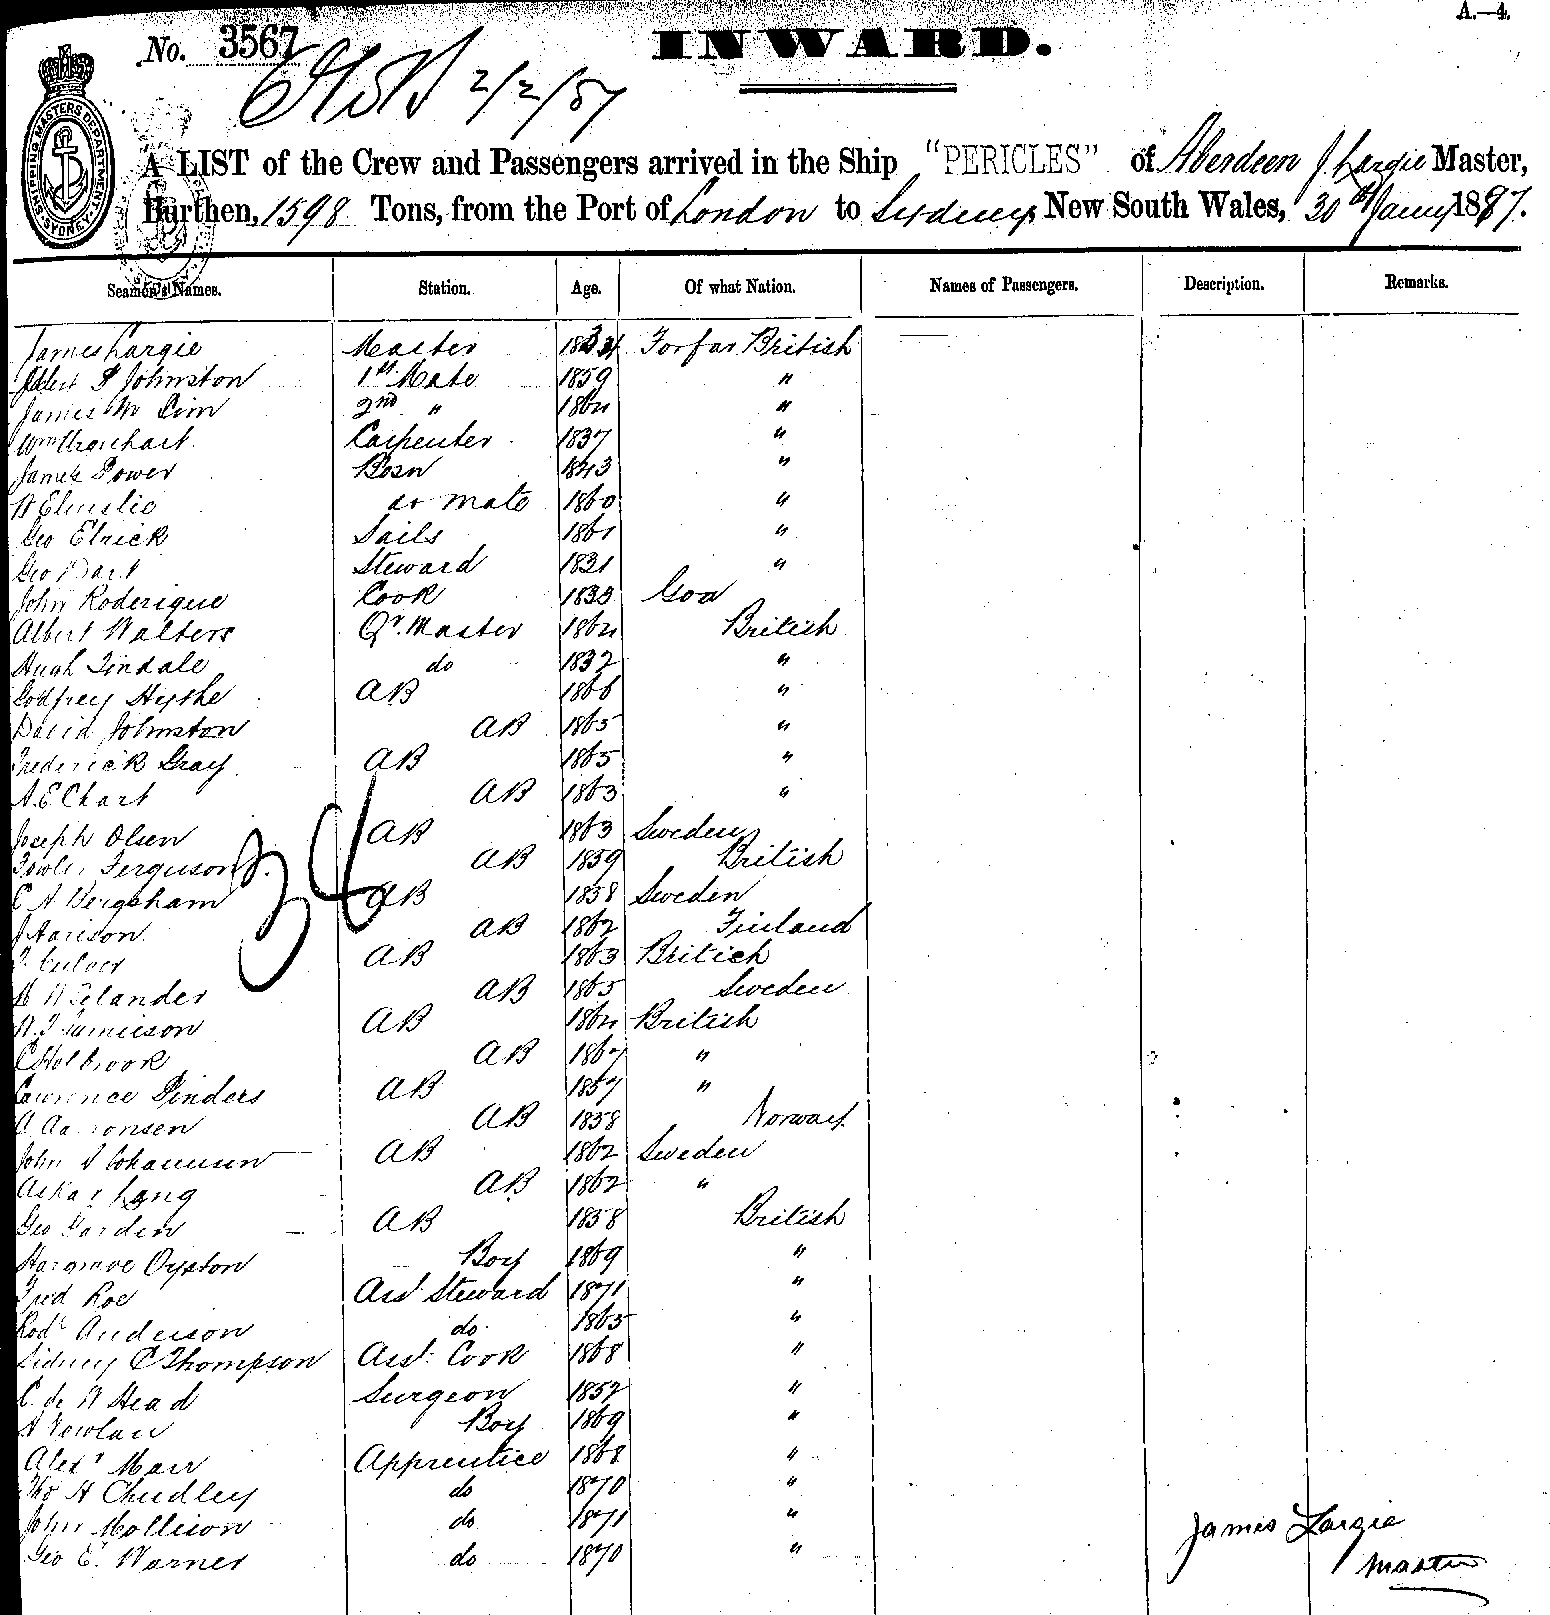 A.—4.
No. 3567
INWARD.
2/2/87
SHIPPING MASTERS DEPARTMENT SYDNEY
A LIST of the Crew and Passengers arrived in the Ship "PERICLES" of Aberdeen J Largie Master,
Burthen, 1598 Tons, from the Port of London to Sydney, New South Wales, 30th Jany 1887.
Seamen's Names. Station. Age. Of what Nation. Names of Passengers. Description. Remarks.
James Largie Master 1834 Forfar British
Johnston 1st Mate 1859 "
James M 2nd " 1864 "
Wm Urquhart Carpenter 1837 "
James Power Bosn 1843 "
Elmslie do mate 1860 "
Geo Elrick Sails 1861 "
Geo Steward 1831 "
John Roderique Cook 1833 Goa
Albert Walters Qr. Master 1864 British
Hugh Tindale do 1832 "
Godfrey Hythe AB 1866 "
David Johnston AB 1865 "
Frederick Gray AB 1865 "
A. E. Chart AB 1863 "
Joseph Olsen AB 1863 Sweden
Ferguson AB 1859 British
34
C A Bergsham AB 1858 Sweden
J Harison AB 1862 Finland
Culver AB 1863 British
AB 1865 Sweden
Jamieson AB 1864 British
C Holbrook AB 1867 "
Lawrence Pinders AB 1857 "
A Aaronsen AB 1858 Norway
John Johannson AB 1862 Sweden
Askar Lang AB 1862 "
Geo Garden AB 1858 British
Hargrave Oyston Boy 1869 "
Fred Roe Asst Steward 1871 "
Rodk Anderson do 1865 "
Sidney C Thompson Asst Cook 1868 "
C. de W Head Surgeon 1852 "
Nowlan Boy 1869 "
Alexr Marr Apprentice 1868 "
Tho H Chudley do 1870 "
John Mollison do 1871 "
Geo E. Warner do 1870 "
James Largie
Master